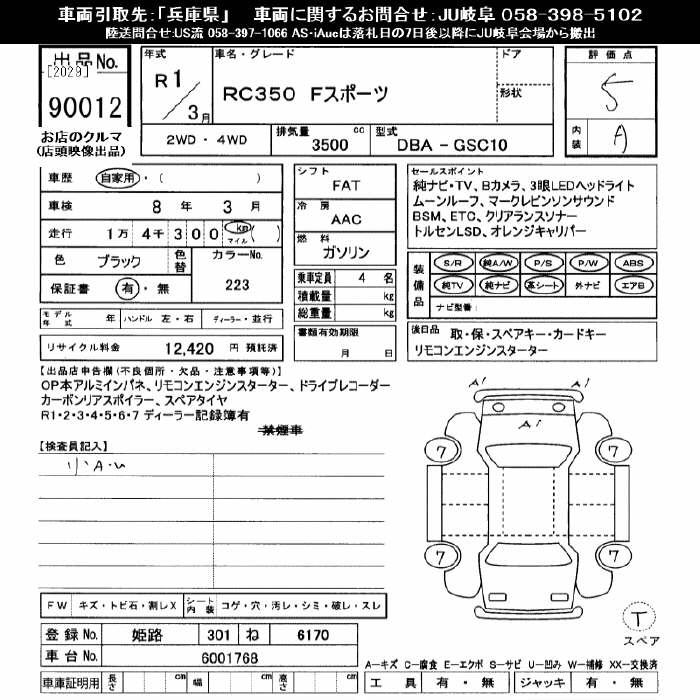 車両引取先：「兵庫県」 車両に関するお問合せ：JU岐阜 058-398-5102
陸送問合せ:US流 058-397-1066 AS-iAucは落札日の7日後以降にJU岐阜会場から搬出
出品No.
[2029]
90012
お店のクルマ
(店頭映像出品)
年式
R1/3月
車名・グレード
RC350 Fスポーツ
ドア
形状
2WD・4WD
排気量
3500
cc
型式
DBA - GSC10
評価点
5
内装
A
車歴 自家用・( )
車検 8年 3月
走行 1万 4千 300 km マイル ( )
色 ブラック 色替 カラーNo.
保証書 有・無 223
モデル年式 年 ハンドル 左・右 ディーラー・並行
リサイクル料金 12,420 円 預託済
シフト
FAT
冷房
AAC
燃料
ガソリン
乗車定員 4 名
積載量 kg
総重量 kg
書類有効期限
月 日
セールスポイント
純ナビ・TV、Bカメラ、3眼LEDヘッドライト
ムーンルーフ、マークレビンソンサウンド
BSM、ETC、クリアランスソナー
トルセンLSD、オレンジキャリパー
装備品
S/R 純A/W P/S P/W ABS
純TV 純ナビ 革シート 外ナビ エアB
ナビ型番:
後日品 取・保・スペアキー・カードキー
リモコンエンジンスターター
【出品店申告欄(不良個所・欠品・注意事項等)】
OP本アルミインパネ、リモコンエンジンスターター、ドライブレコーダー
カーボンリアスポイラー、スペアタイヤ
R1・2・3・4・5・6・7 ディーラー記録簿有
禁煙車
【検査員記入】
小A・U
A1 A1
A1
7 7
7 7
T
スペア
FW キズ・トビ石・割レX シート内装 コゲ・穴・汚レ・シミ・破レ・スレ
登録No. 姫路 301 ね 6170
車台No. 6001768
車庫証明用 長さ cm 幅 cm 高さ cm
A－キズ C－腐食 E－エクボ S－サビ U－凹み W－補修 XX－交換済
工具 有・無 ジャッキ 有・無